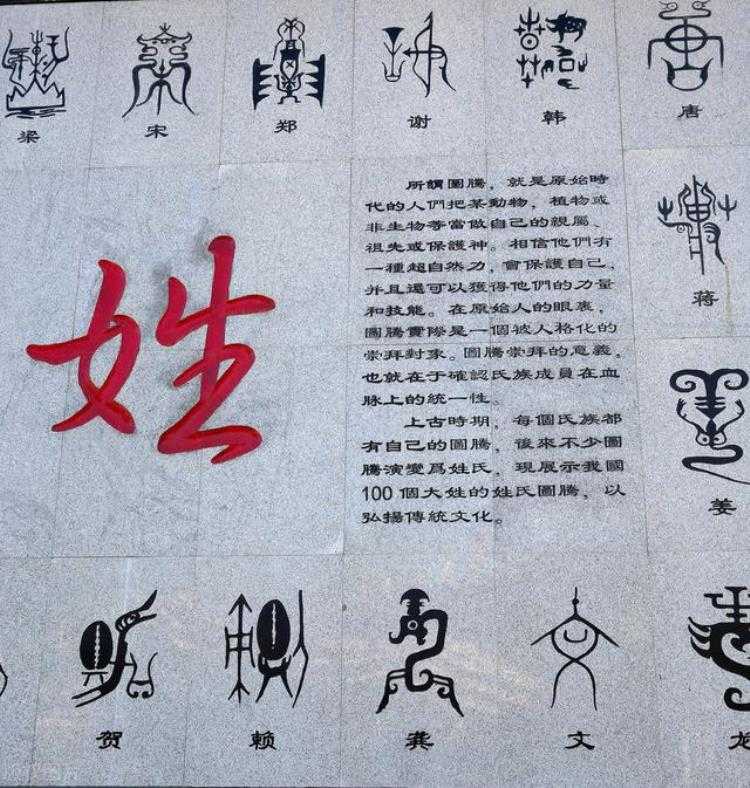 梁 宋 郑 谢 韩 唐
姓
所謂圖騰，就是原始時
代的人們把某動物，植物或
非生物等當做自己的親屬、
祖先或保護神。相信他們有
一種超自然力，會保護自己，
并且還可以獲得他們的力量
和技能。在原始人的眼裏，
圖騰實際是一個被人格化的
崇拜對象。圖騰崇拜的意義，
也就在于確認氏族成員在血
脉上的統一性。
上古時期，每個氏族都
有自己的圖騰，後來不少圖
騰演變爲姓氏，現展示我國
100個大姓的姓氏圖騰，以
弘揚傳統文化。
蒋
姜
贺 赖 龚 文